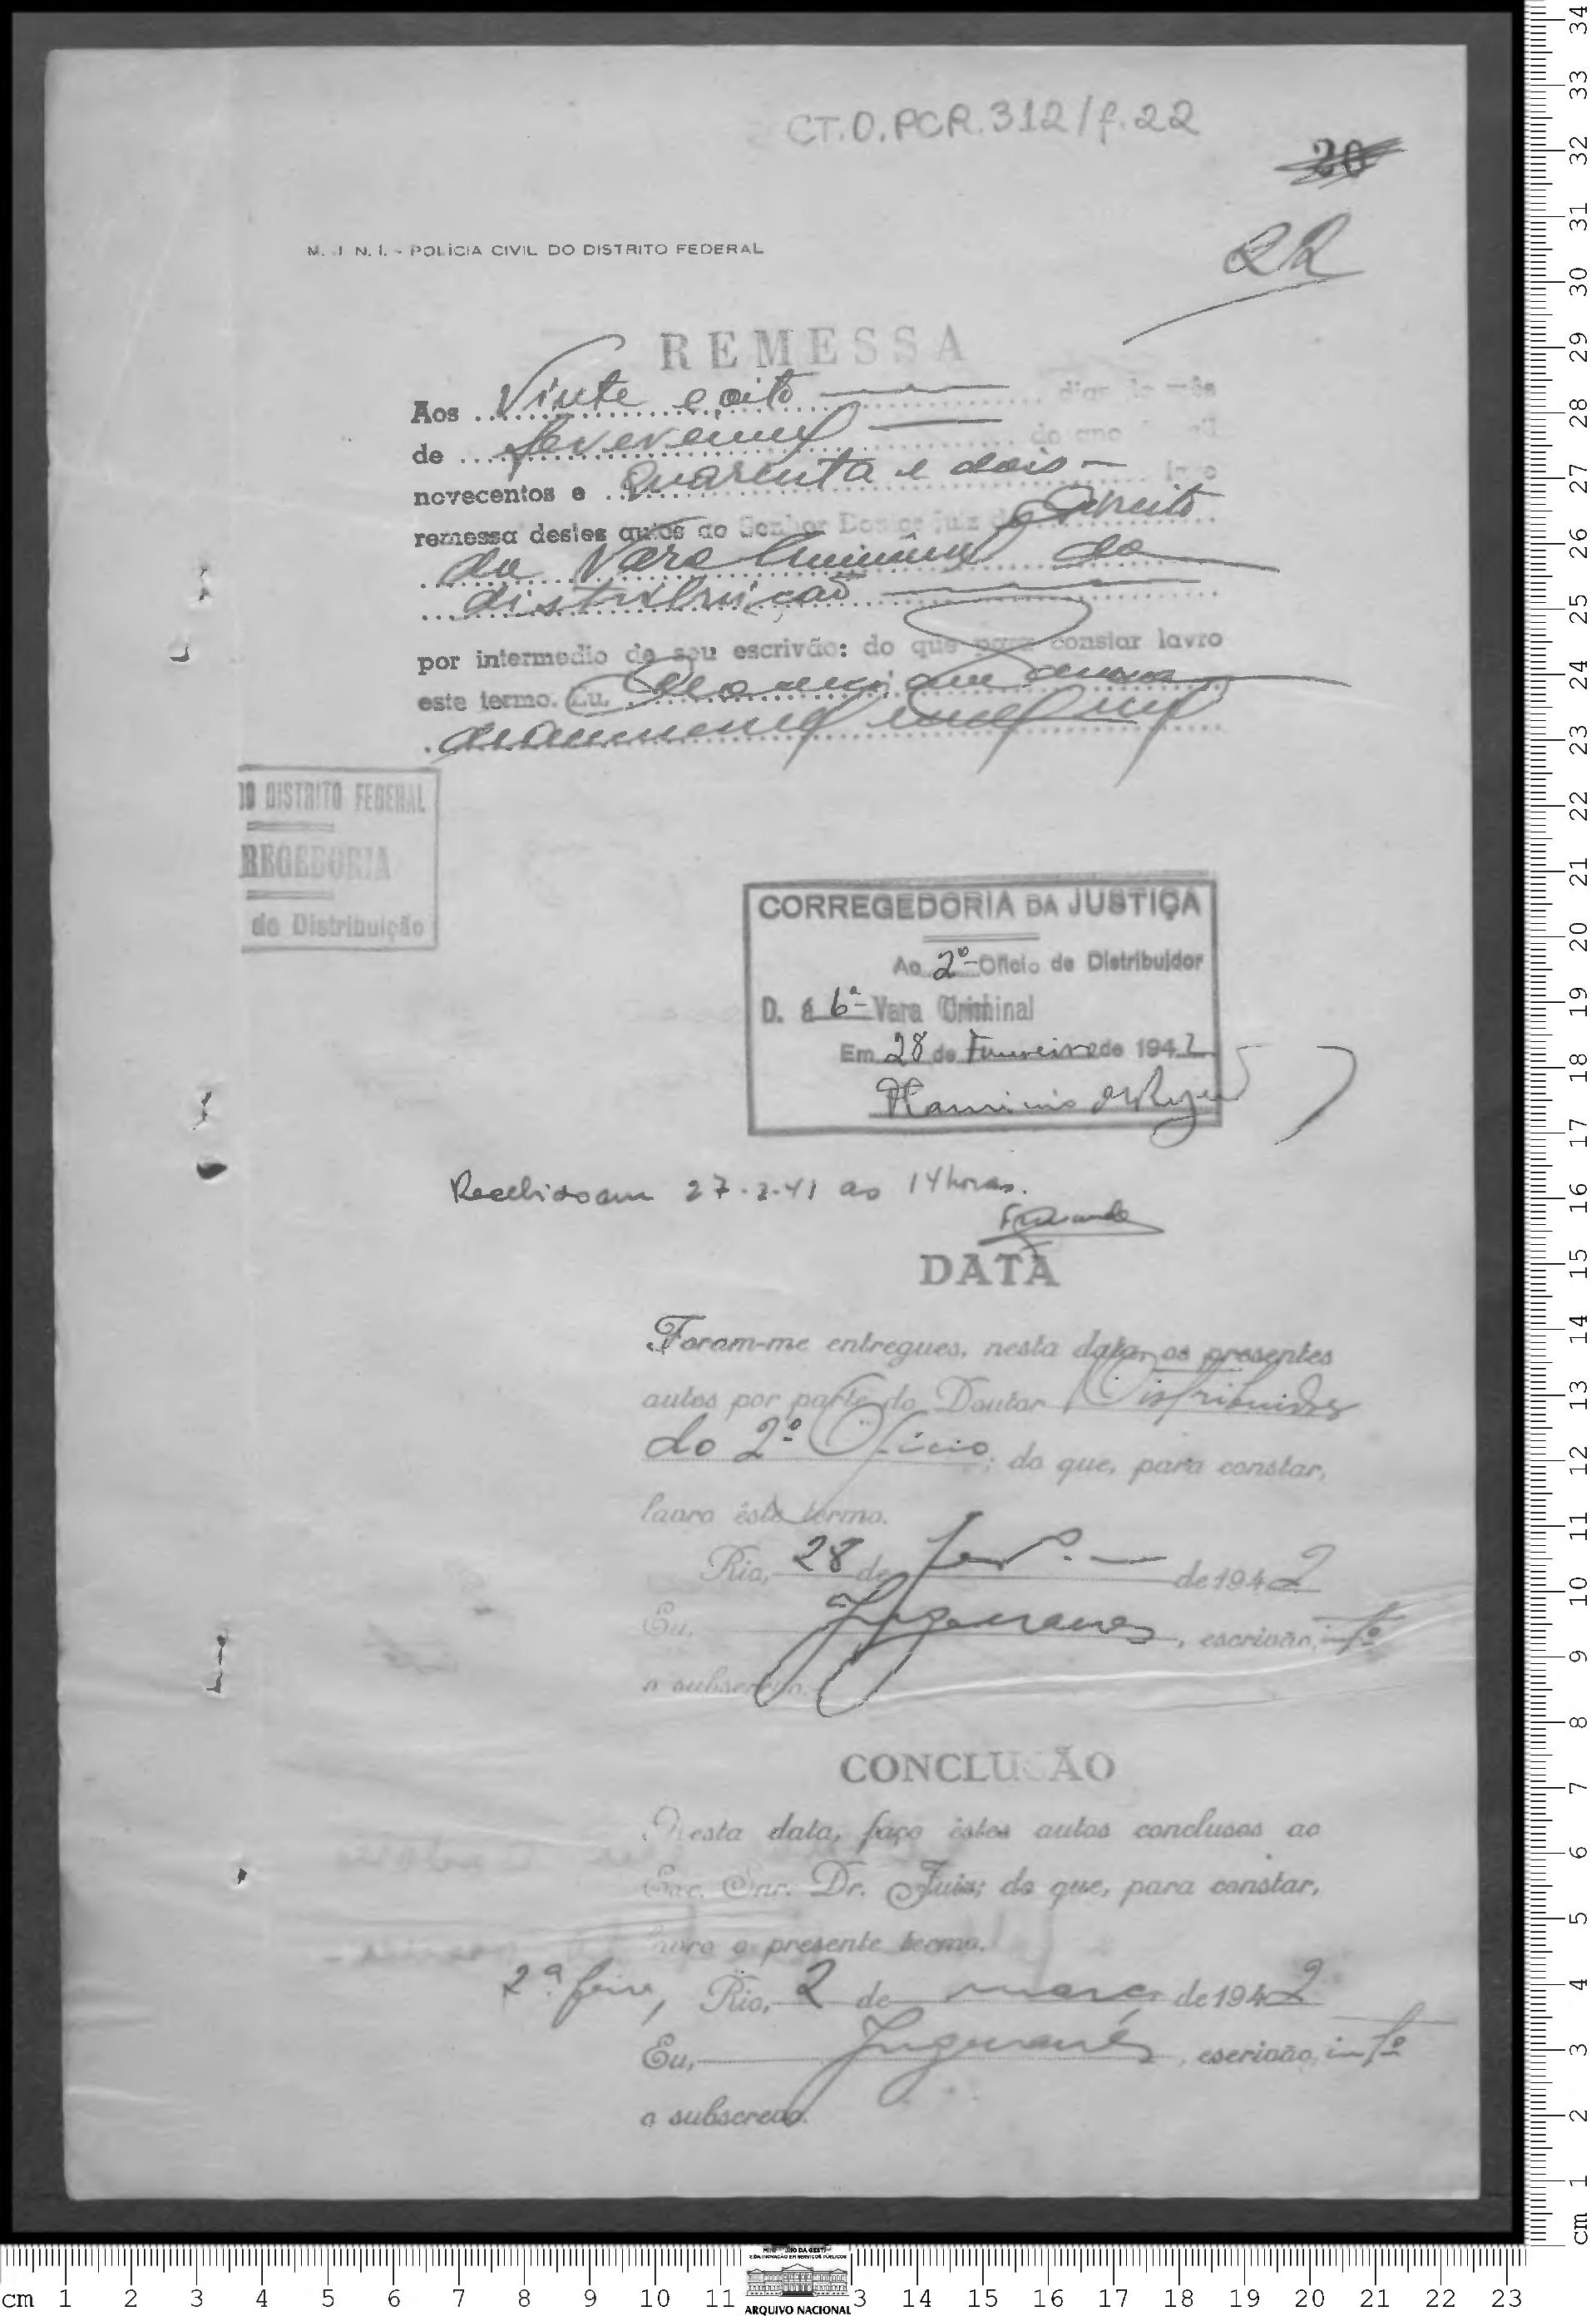 CT.0.PCR.312/f.22
20
22
M. J. N. I. - POLÍCIA CIVIL DO DISTRITO FEDERAL
REMESSA
Aos Vinte e oito dias do mês
de fevereiro do ano mil
novecentos e quarenta e dois faço
remessa destes autos ao Senhor Doutor Juiz de Direito
da Vara Criminal da
distribuição
por intermedio de seu escrivão: do que para constar lavro
este termo. Eu,
IO DISTRITO FEDERAL
REGEDORIA
de Distribuição
CORREGEDORIA DA JUSTIÇA
Ao 2º Oficio de Distribuidor
D. á 6ª Vara Criminal
Em 28 de Fevereiro de 1942
Recebido em 27-2-41 as 14 horas.
DATA
Foram-me entregues, nesta data, os presentes
autos por parte do Doutor Distribuidor
do 2º Oficio; do que, para constar,
lavro êste termo.
Rio, 28 de fev. de 1942
Eu, , escrivão, intº
o subscrevo.
CONCLUSÃO
Nesta data, faço êstes autos conclusos ao
Exc. Snr. Dr. Juiz; do que, para constar,
lavro o presente termo.
2ª feira, Rio, 2 de março de 1942
Eu, , escrivão, intº
o subscrevo.
ARQUIVO NACIONAL